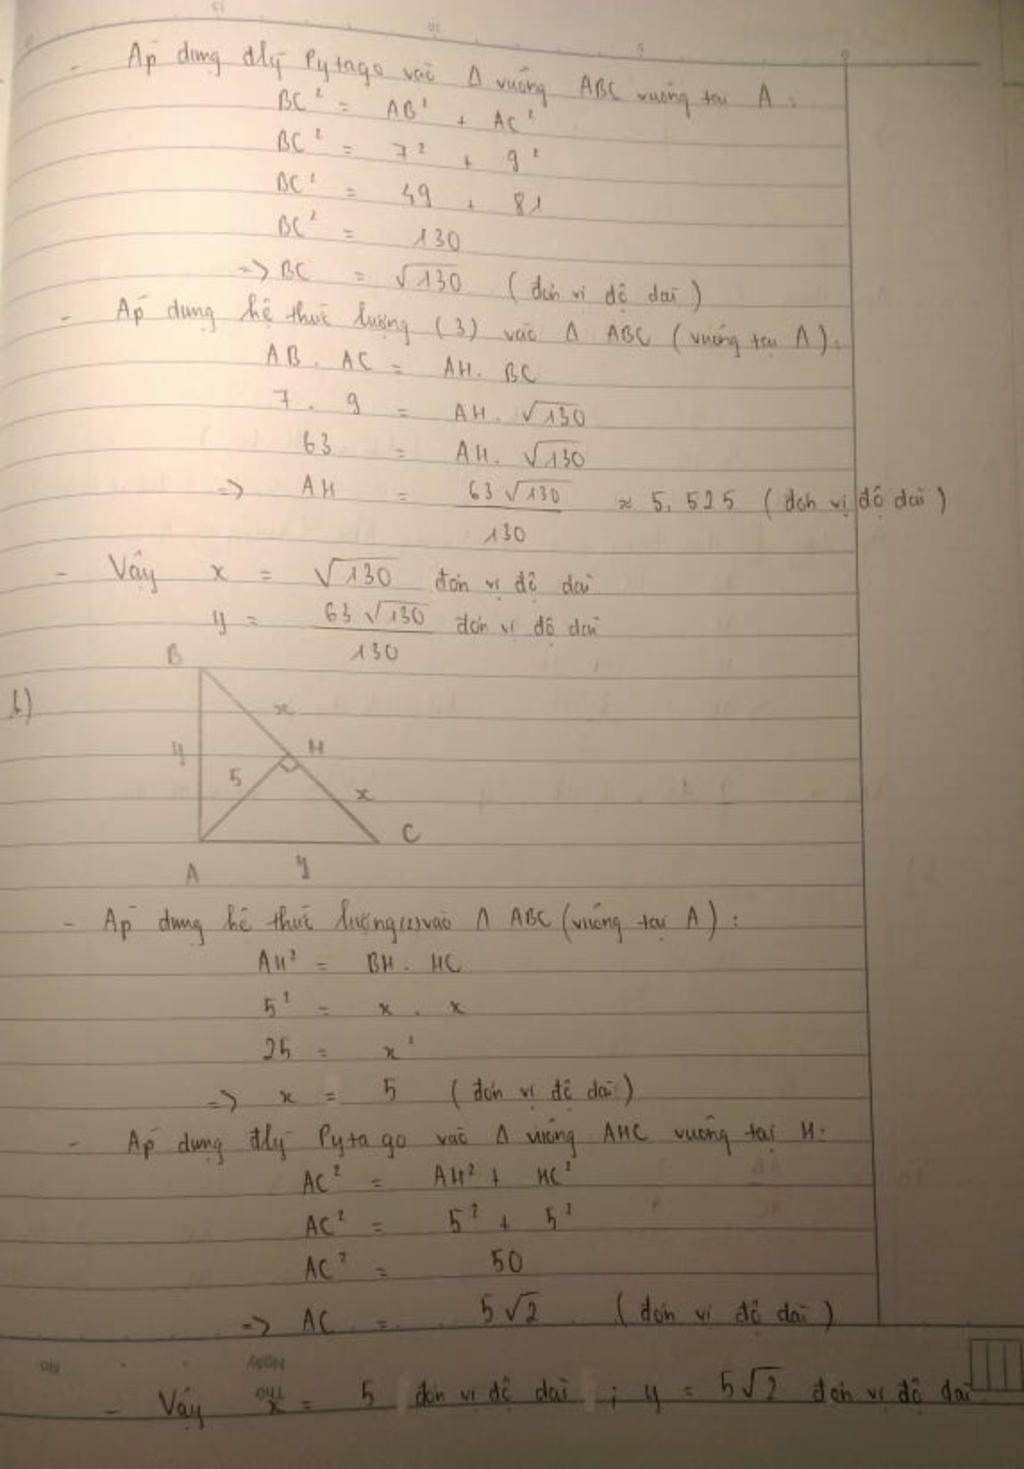 - Áp dụng đlý Pytago vào Δ vuông ABC vuông tại A :
BC² = AB² + AC²
BC² = 7² + 9²
BC² = 49 + 81
BC² = 130
=> BC = √130 (đơn vị độ dài)
- Áp dụng hệ thức lượng (3) vào Δ ABC (vuông tại A) :
AB . AC = AH . BC
7 . 9 = AH . √130
63 = AH . √130
=> AH = 63√130 / 130 ≈ 5,525 (đơn vị độ dài)
- Vậy x = √130 đơn vị độ dài
y = 63√130 / 130 đơn vị độ dài
b)
B
x
y
H
5
x
C
A
y
- Áp dụng hệ thức lượng (2) vào Δ ABC (vuông tại A) :
AH² = BH . HC
5² = x . x
25 = x²
=> x = 5 (đơn vị độ dài)
- Áp dụng đlý Pytago vào Δ vuông AHC vuông tại H.
AC² = AH² + HC²
AC² = 5² + 5²
AC² = 50
=> AC = 5√2 (đơn vị độ dài)
No Ngày
Thứ
- Vậy x = 5 đơn vị độ dài ; y = 5√2 đơn vị độ dài